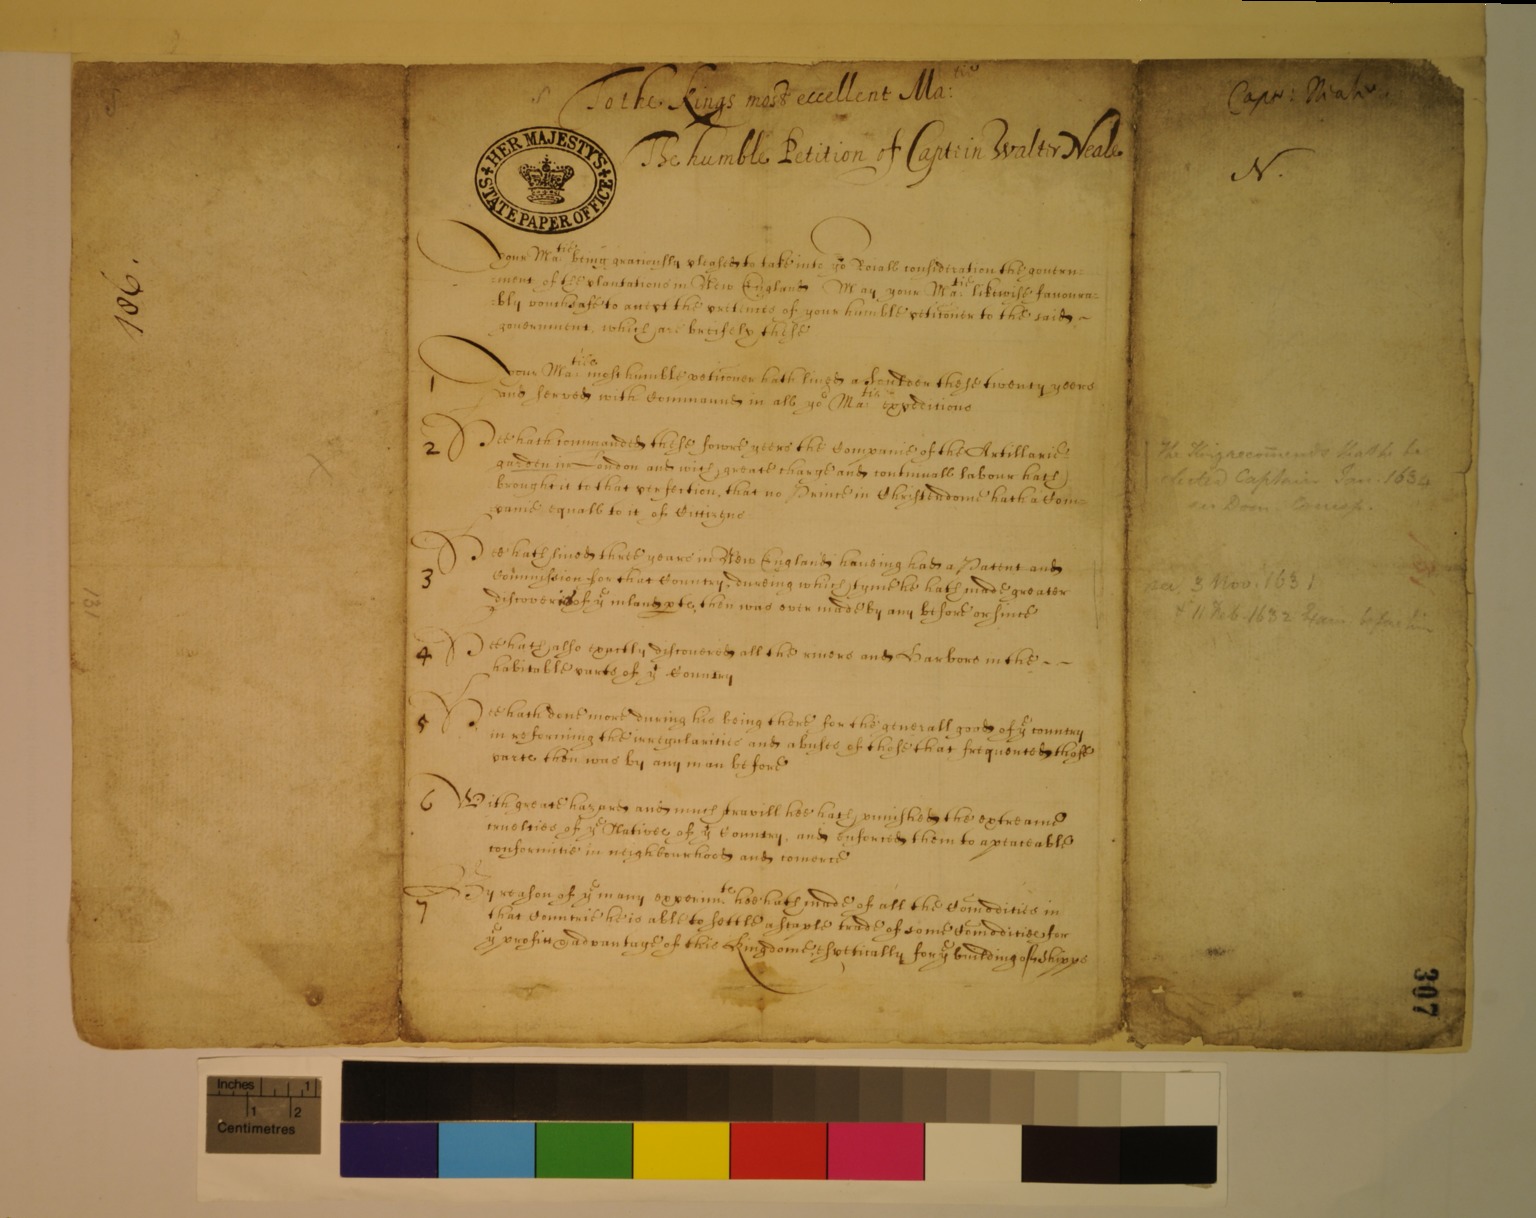 To the Kings most excellent Ma:tie
The humble Petition of Captein Walter Neale
HER MAJESTY'S
STATE PAPER OFFICE
Your Ma:tie being graciously pleased to take into yo.r Roiall consideration the govern=
=ment of the plantations in New England May your Ma:tie likewise favoura=
=bly vouchsafe to accept the pretences of your humble peticioner to the said ~
government, which are breifely these
1 Your Ma:ties most humble peticioner hath lived a Souldier these twenty yeers
and served with Commaund in all yo.r Ma:ties expeditions
2 Hee hath commanded these fowre yeers the Companie of the Artillarie
garden in London and with great charge and continuall labour hath
brought it to that perfection, that no Prince in Christendome hath a Com=
panie equall to it of Cittizens
3 Hee hath lived three years in New England having had a Patent and
Commission for that Country, dureing which tyme he hath made greater
discoveries of ye inland pts, then was ever made by any before or since
4 Hee hath also exactly discovered all the rivers and Harbors in the ~ ~
habitable parts of ye Country
5 Hee hath done more during his being there for the generall good of ye country
in reforming the irregularities and abuses of those that frequented those
parts then was by any man before
6 With great hazard and much travill hee hath punished the extreame
cruelties of ye Natives of ye Country, and enforced them to a peaceable
conformitie in neighbourhood and comerce
7 By reason of ye many experim.ts hee hath made of all the Comodities in
that Countrie he is able to settle a staple trade of some Comodities for
ye profitt & advantage of this Kingdome, espetically for ye building of Shipps
Capt: Neale
N.
186.
131
The King recommends that he be
elected Captain Jan: 1634
see Dom Corresp.
see 3 Nov. 1631
& 11 Feb. 1632
307
Inches 1
1 2
Centimetres